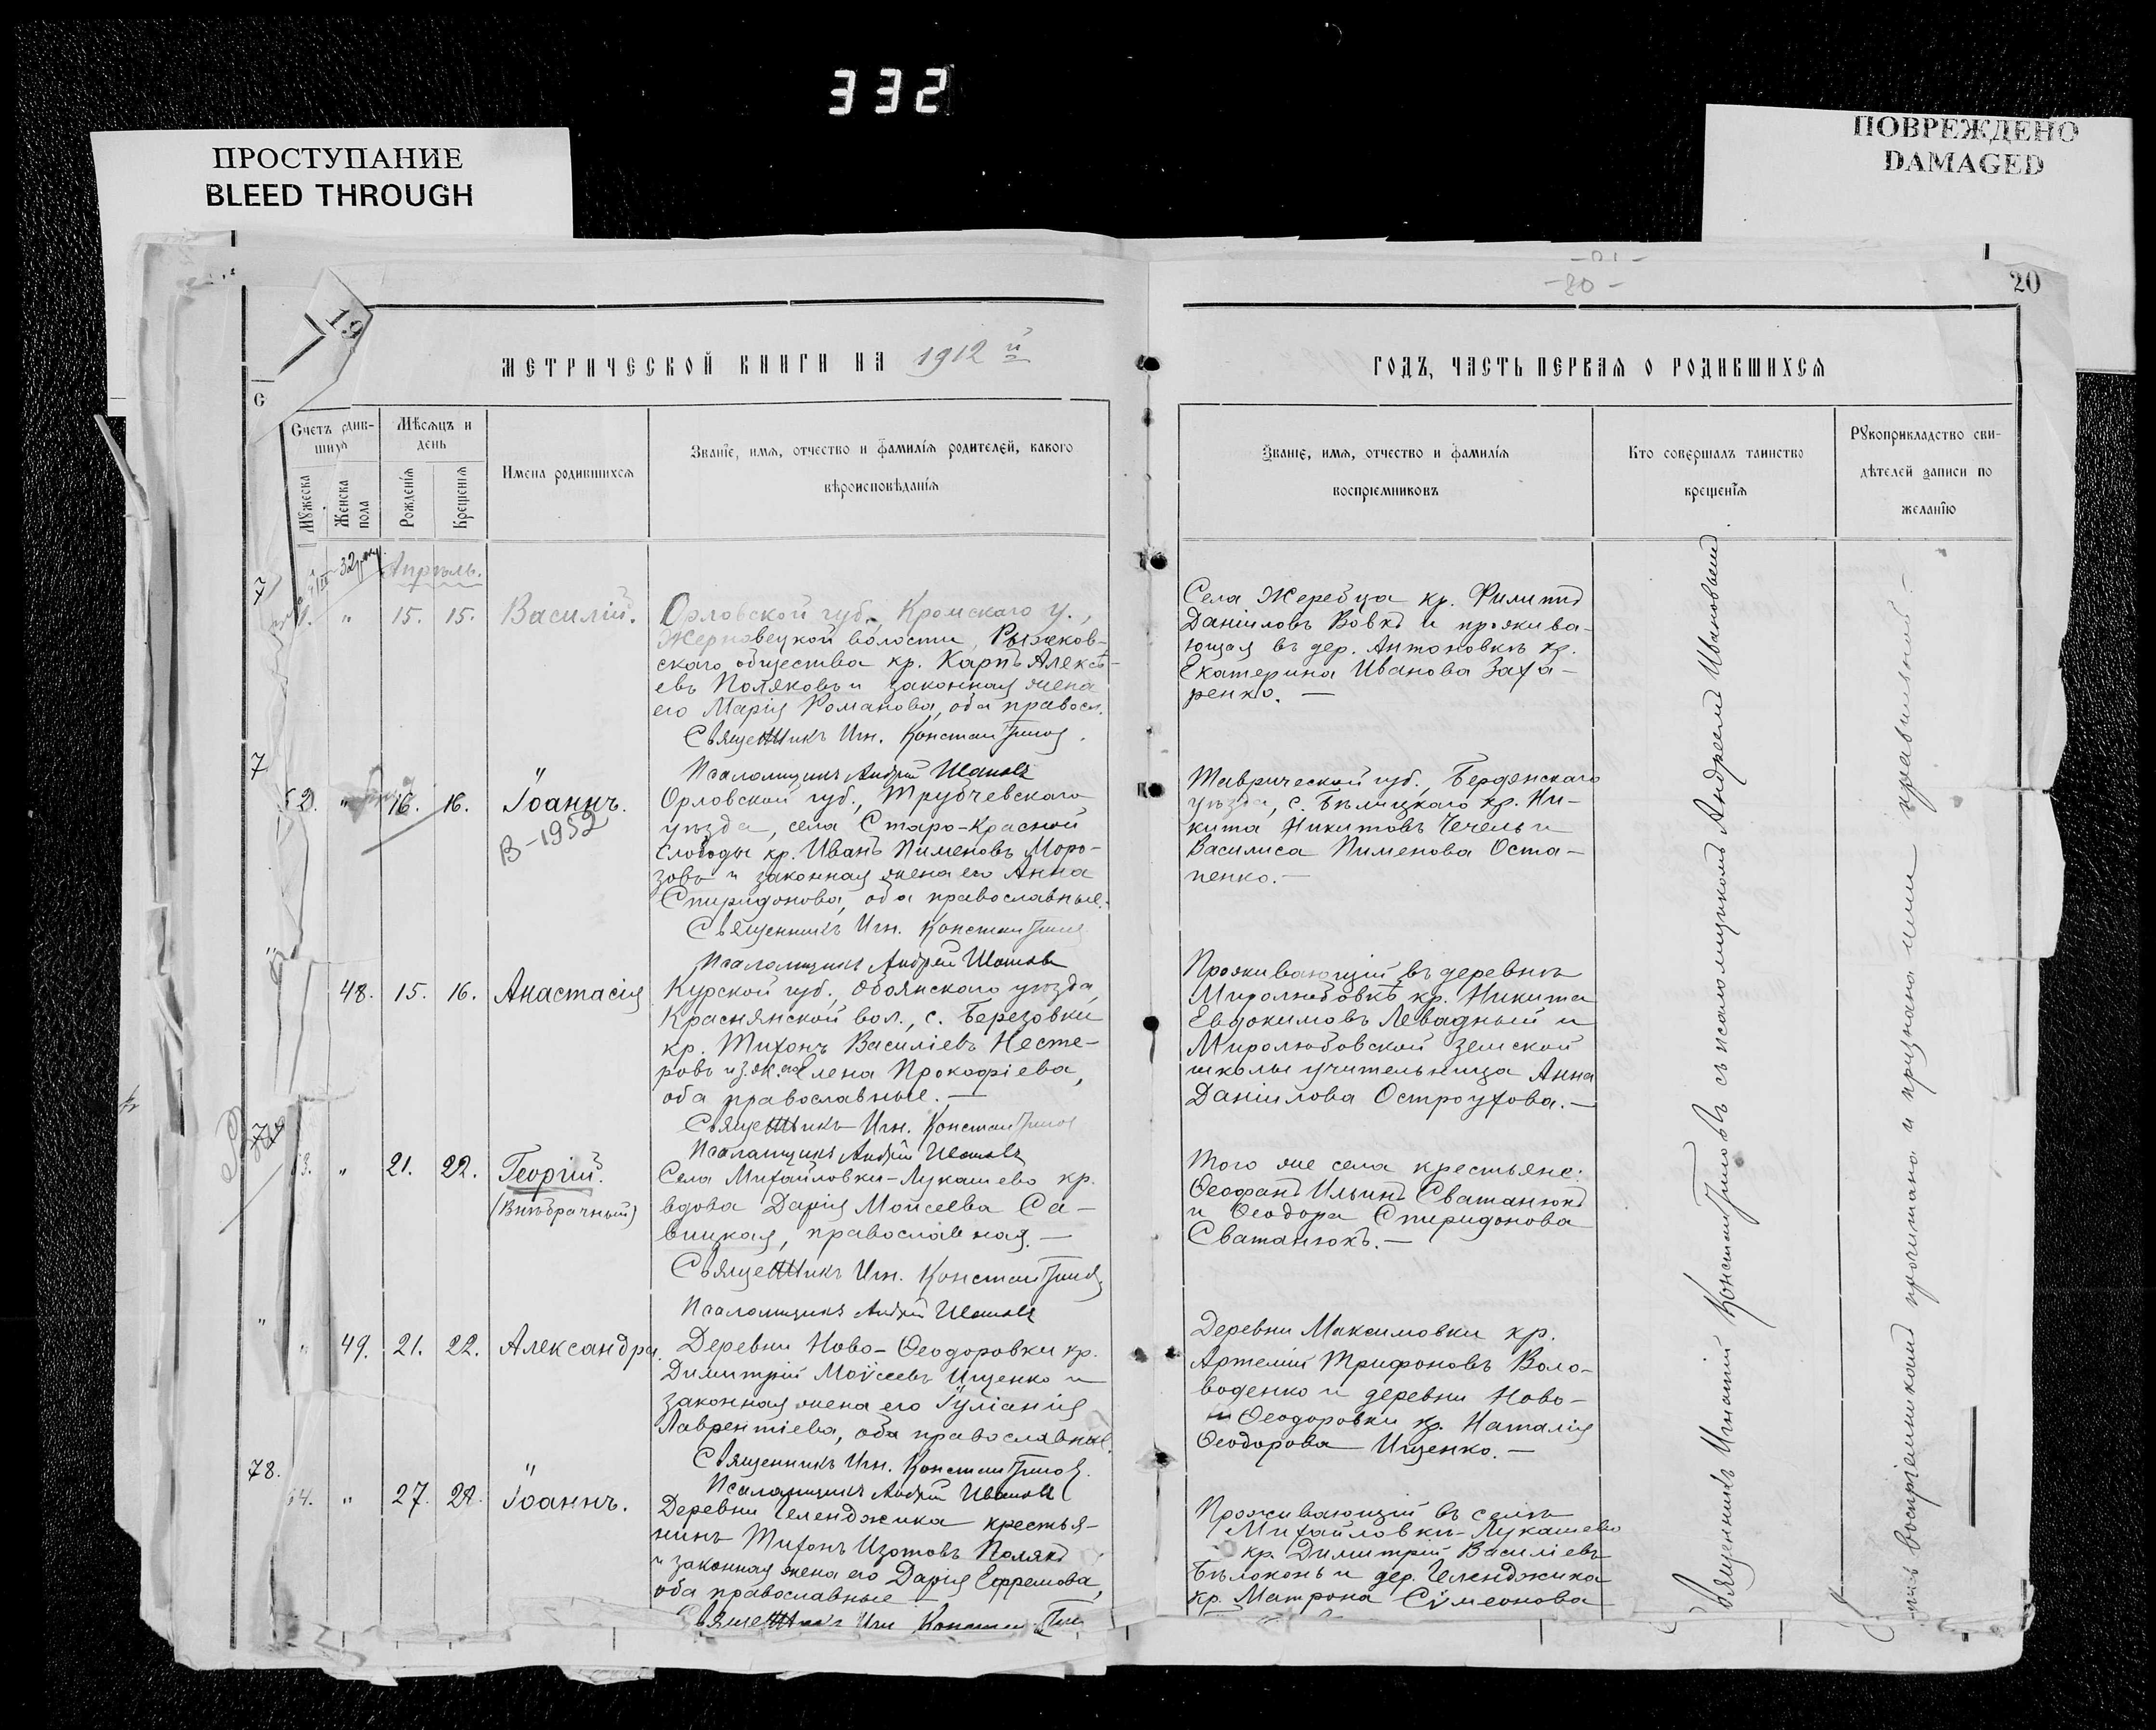 332
ПРОСТУПАНИЕ
BLEED THROUGH
ПОВРЕЖДЕНО
DAMAGED
-20-
20
19
МЕТРИЧЕСКОЙ КНИГИ НА 1912 й
ГОДЪ, ЧАСТЬ ПЕРВАЯ О РОДИВШИХСЯ
Счетъ родив-
шихся
Мужеска
Женска
пола
Мѣсяцъ и
день
Рожденія
Крещенія
Имена родившихся
Званіе, имя, отчество и фамилія родителей, какого
вѣроисповѣданія
Званіе, имя, отчество и фамилія
воспріемниковъ
Кто совершалъ таинство
крещенія
Рукоприкладство сви-
дѣтелей записи по
желанію
Апрѣль.
1. " 15. 15. Василій.
Орловской губ., Кромскаго у.,
Жерновецкой волости, Рыжков-
скаго общества кр. Карпъ Алексѣ-
евъ Поляковъ и законная жена
его Марія Романова, оба правосл.
Священникъ Игн. Константиновъ.
Псаломщикъ Андрей Ивановъ
Села Жеребца кр. Филиппъ
Даніиловъ Вовкъ и прожива-
ющая въ дер. Антоновкѣ кр.
Екатерина Иванова Заха-
ренко. —
52. " 16. 16. Іоаннъ.
В-1952
Орловской губ., Трубчевскаго
уѣзда, села Старо-Красной
Слободы кр. Иванъ Пименовъ Моро-
зовъ и законная жена его Анна
Спиридонова, оба православные.
Священникъ Игн. Константиновъ
Псаломщикъ Андрей Ивановъ
Таврической губ., Бердянскаго
уѣзда, с. Бѣлицкаго кр. Ни-
кита Никитовъ Чечель и
Василиса Пименова Оста-
пенко. —
48. 15. 16. Анастасія
Курской губ., Обоянскаго уѣзда,
Краснянской вол., с. Березовки
кр. Тихонъ Василіевъ Несте-
ровъ и з. ж. его Елена Прокофіева,
оба православные. —
Священникъ Игн. Константиновъ
Псаломщикъ Андрей Ивановъ
Проживающій въ деревнѣ
Миролюбовкѣ кр. Никита
Евдокимовъ Левадный и
Миролюбовской земской
школы учительница Анна
Даніилова Остроухова. —
3. " 21. 22. Георгій.
(Внѣбрачный)
Села Михайловки-Лукашево кр.
вдова Дарія Моисеева Са-
вицкая, православная. —
Священникъ Игн. Константиновъ
Псаломщикъ Андрей Ивановъ
Того же села крестьяне:
Ѳеофанъ Ильинъ Сватанюкъ
и Ѳеодора Спиридонова
Сватанюкъ. —
" 49. 21. 22. Александра.
Деревни Ново-Ѳеодоровки кр.
Димитрій Моѵсеевъ Ищенко и
законная жена его Іуліанія
Лаврентіева, оба православные.
Священникъ Игн. Константиновъ.
Псаломщикъ Андрей Ивановъ
Деревни Максимовки кр.
Артемій Трифоновъ Воло-
воденко и деревни Ново-
Ѳеодоровки кр. Наталія
Ѳеодорова Ищенко. —
78.
54. " 27. 28. Іоаннъ.
Деревни Геленджика крестья-
нинъ Тихонъ Изотовъ Полякъ
и законная жена его Дарія Ефремова,
оба православные —
Священникъ Игн Константин
Проживающій въ селѣ
Михайловкѣ-Лукашево
кр. Димитрій Василіевъ
Бѣлоконь и дер. Геленджика
кр. Матрона Сѵмеонова
Священникъ Игнатій Константиновъ съ псаломщикомъ Андреемъ Ивановымъ
воспріемниками прочитана и признана ими правильной —